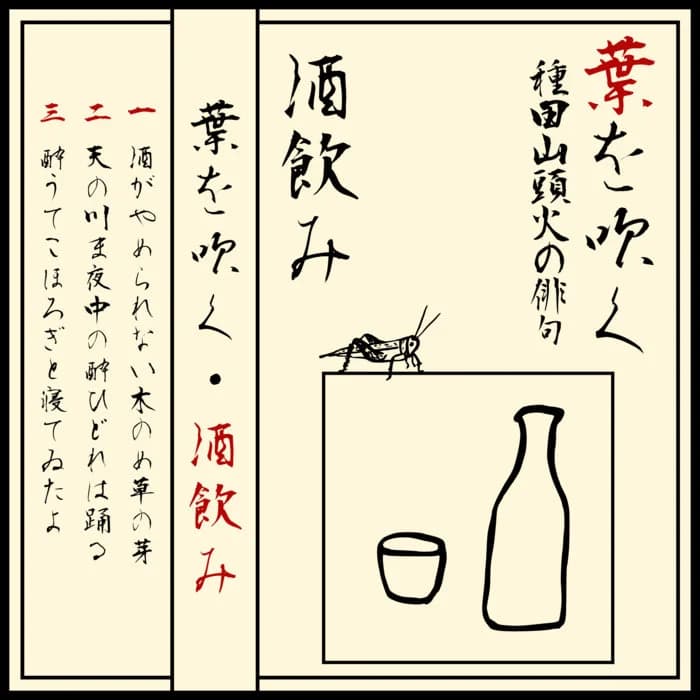 葉を吹く
種田山頭火の俳句
酒飲み
葉を吹く・酒飲み
一 酒がやめられない木のめ草の芽
二 天の川ま夜中の酔ひどれは踊る
三 酔うてこほろぎと寝てゐたよ